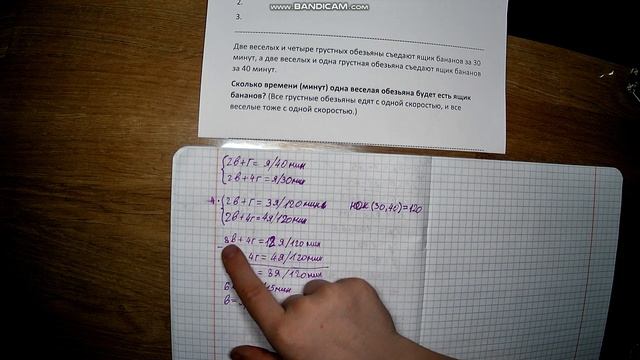 www.BANDICAM.com
2.
3.
Две веселых и четыре грустных обезьяны съедают ящик бананов за 30
минут, а две веселых и одна грустная обезьяна съедают ящик бананов
за 40 минут.
Сколько времени (минут) одна веселая обезьяна будет есть ящик
бананов? (Все грустные обезьяны едят с одной скоростью, и все
веселые тоже с одной скоростью.)
2в+г= Я/40мин
2в+4г=Я/30мин
4· 2в+г= 3Я/120мин НОК(30,40)=120
2в+4г=4Я/120мин
8в+4г=12Я/120мин
4г=4Я/120мин
= 8Я/120мин
6
в=